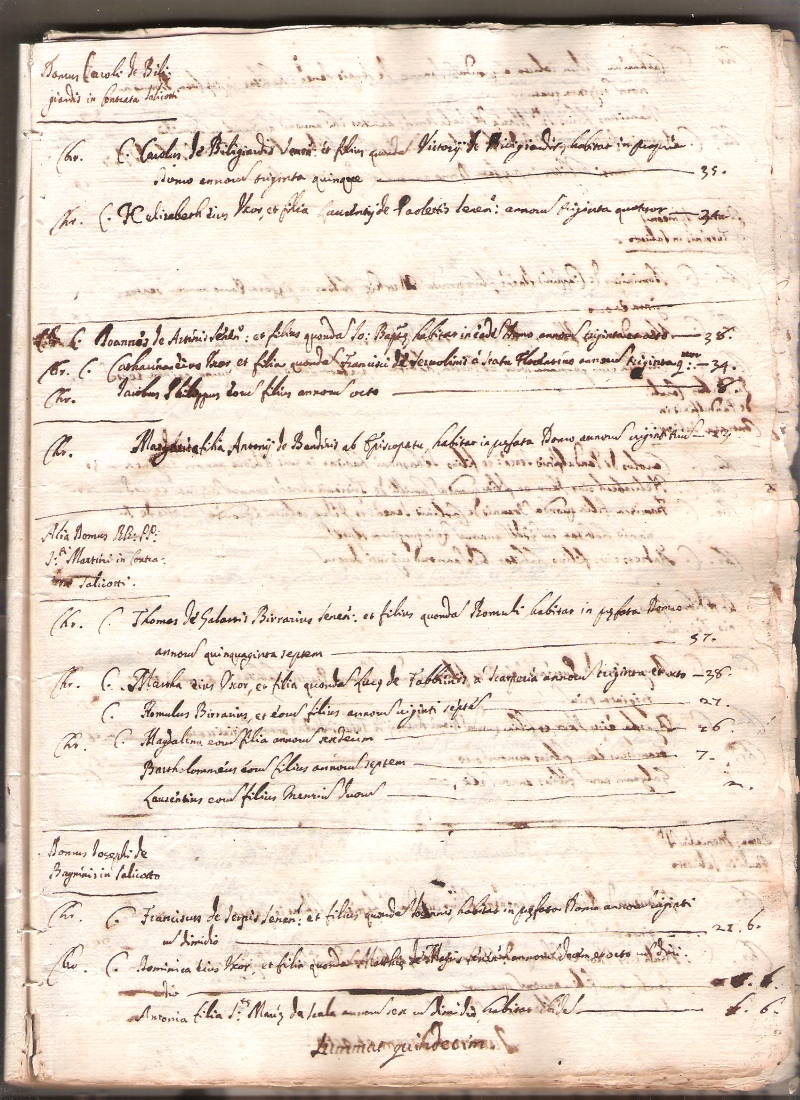 Domus Caroli de Bili:
giardis in Contrata Salicotti
Chr. C. Carolus de Biligiardis Senen: et filius quonda Victorij de Biligiardis, habitat in propria
Domo annorum triginta quinque 35.
Chr. C. Helizabeth eius Uxor, et filia Laurentij de Paolettis Senen: annorum triginta quatuor 34
C. Joannes de Senen: et filius quonda Jo: Baptae habitat in eade Domo annor triginta et octo 38.
Chr. C. Catharina eius Uxor et filia quonda Francisci de à Statu Florentino annorum triginta 4tuor 34.
Chr. Jacobus Philippus eorum filius annorum octo 8.
Chr. Margarita filia Antonij de Bandinis ab Episcopatu, habitat in prefata Domo annorum viginti
Alia Domus RR: PP:
S.ti Martini in Contra:
Salicotti.
Chr. C. Thomas de Galassis Birrarius Senen: et filius quonda Romuli habitat in prefata Domo
annorum quinquaginta septem 57.
Chr. C. Martha eius Uxor, et filia quonda Lucae de Fabbrinis à Scarperia annorum triginta et octo 38.
C. Romulus Birrarius, et eorum filius annorum viginti septe 27.
Chr. C. Magdalena eorum filia annorum sexdecim 16
Bartholommeus eorum filius annorum septem 7.
Laurentius eorum filius mensium duorum 2.
Domus Josephi de
Bagninis in Salicotto
Chr. C. Franciscus de Senen: et filius quonda Joannis habitat in prefata Domo annorum viginti
cu dimidio 6.
C. Dominica eius Uxor, et filia quonda Matthiae de Senen: annorum decem et octo cu dimi:
dio 6.
Antonia filia S.tae Mariae da Scala annorum sex cu dimidio, habitat ibidem 6. 6.
Summat quindecim